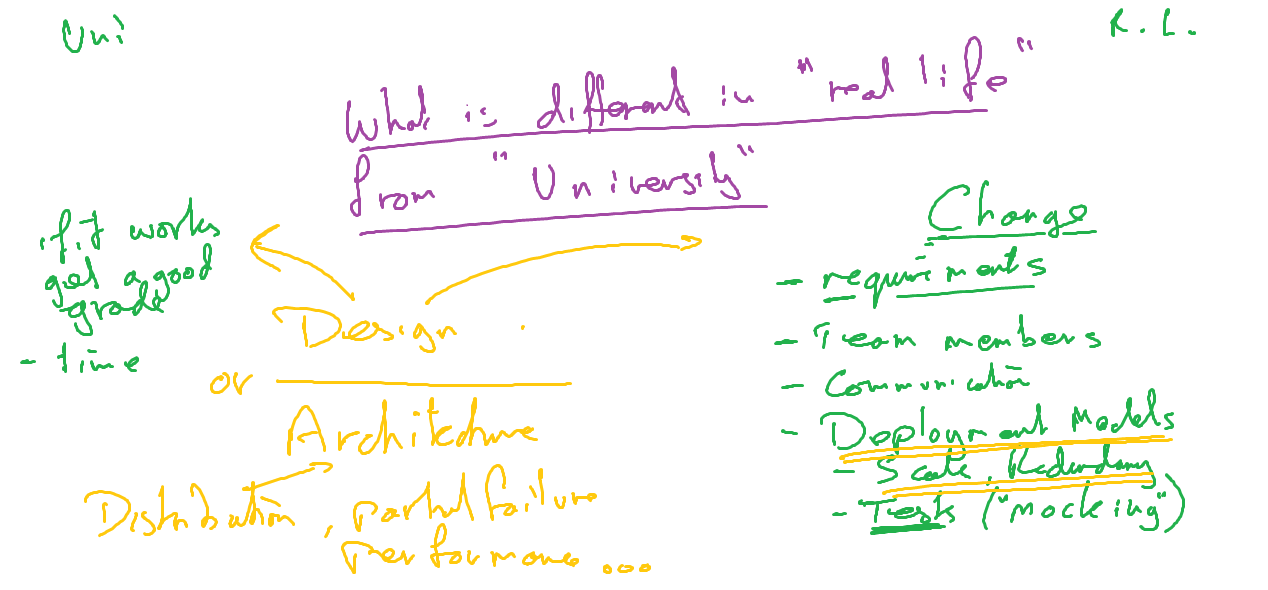 Uni
R. L.
What is different in "real life"
from "University"
if it works
get a good
grade
- time
Design
or
Architecture
Distribution, partial failure
Performance ...
Change
- requirements
- Team members
- Communication
- Deployment Models
- Scale, Redundancy
- Tests ("mocking")